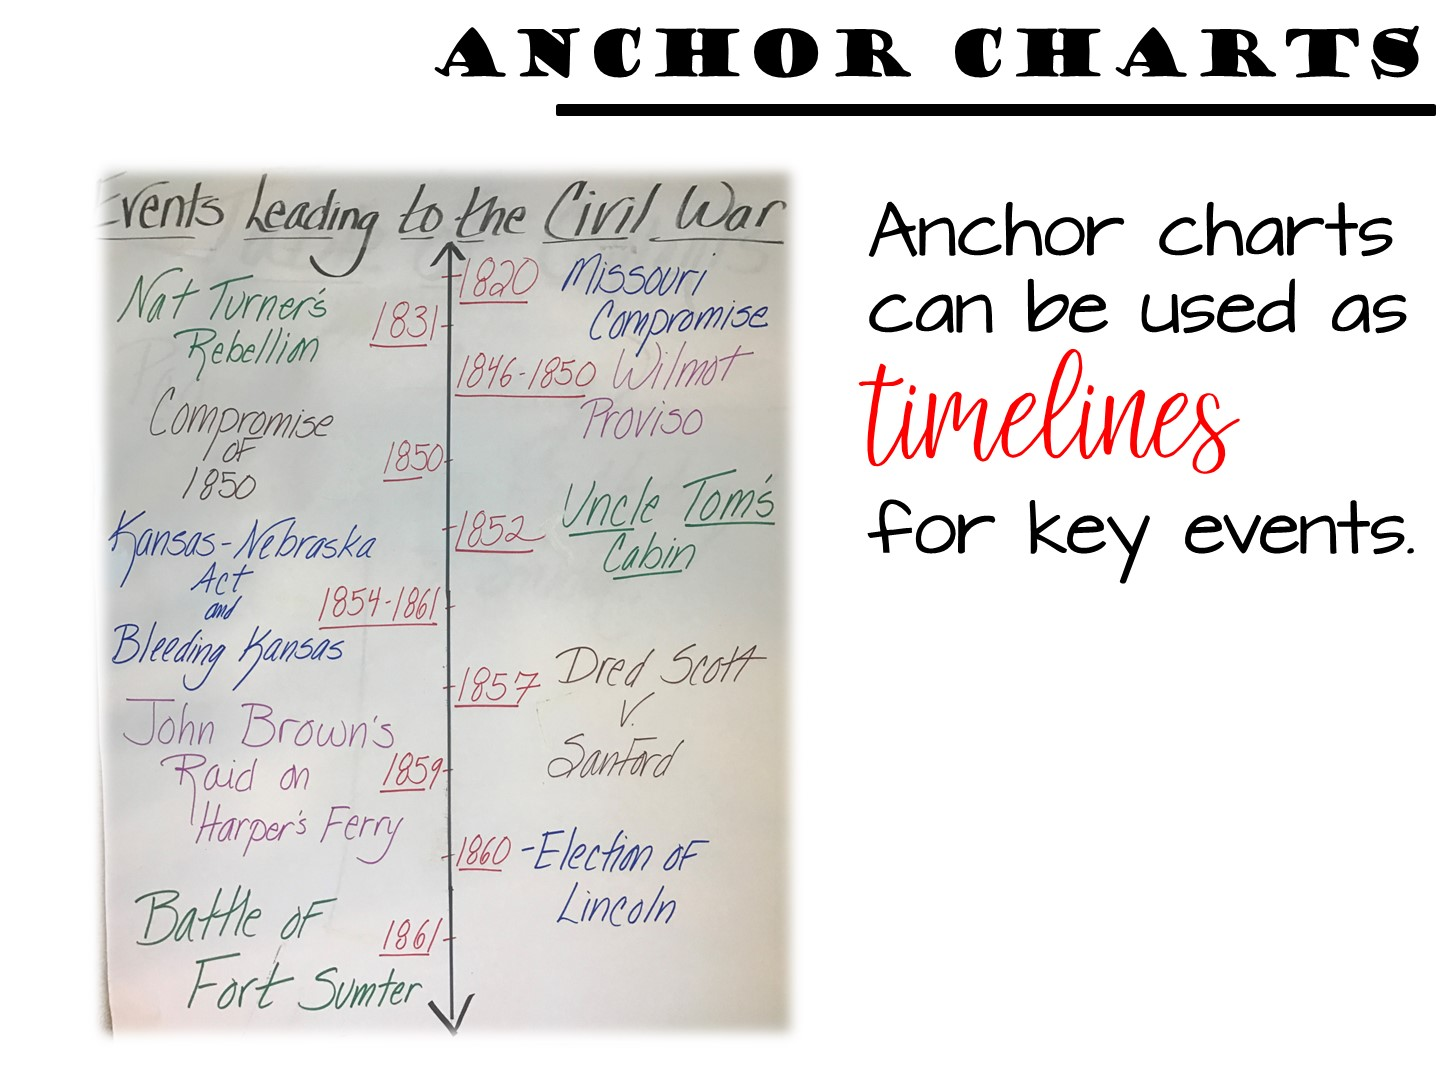 ANCHOR CHARTS
Events Leading to the Civil War
1820 Missouri
Compromise
Nat Turner's
Rebellion
1831
1846-1850 Wilmot
Proviso
Compromise
of
1850
1850
1852
Uncle Tom's
Cabin
Kansas-Nebraska
Act
and
Bleeding Kansas
1854-1861
1857
Dred Scott
v.
Sanford
John Brown's
Raid on
Harper's Ferry
1859
1860 -Election of
Lincoln
Battle of
Fort Sumter
1861
Anchor charts
can be used as
timelines
for key events.